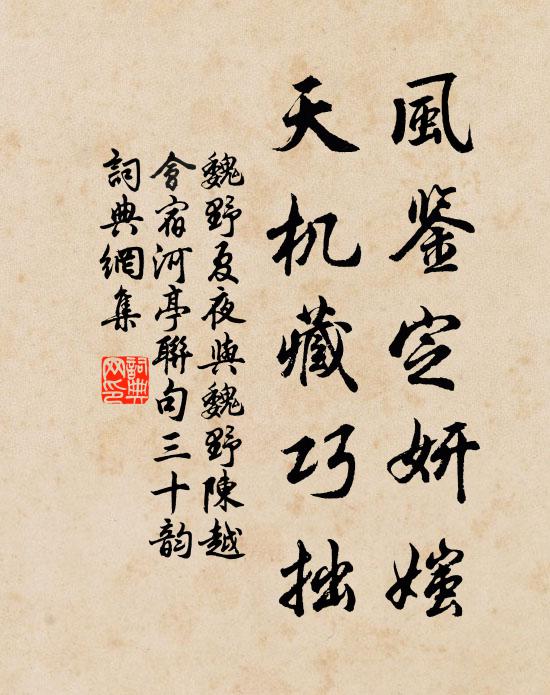 風鉴定妍媸
天机藏巧拙
魏野夏夜與魏野陳越
會宿河亭聯句三十韵
詞典網集
詞典网印